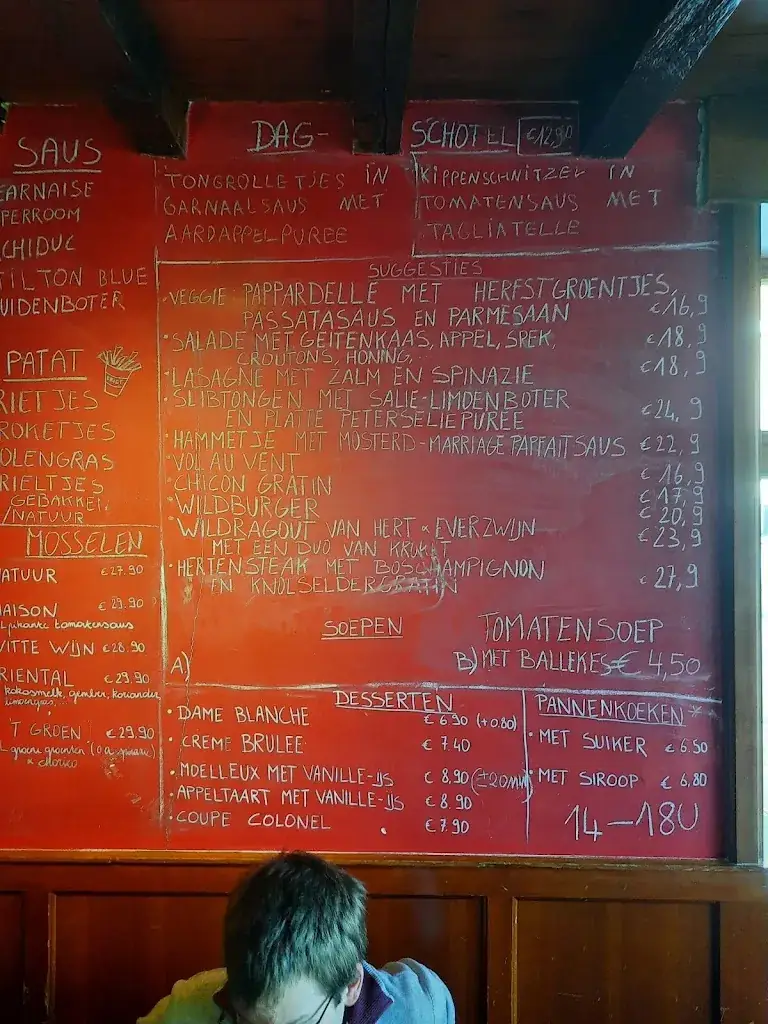 SAUS
EARNAISE
PERROOM
CHIDUC
TILTON BLUE
UIDENBOTER
PATAT
RIETJES
ROKETJES
OLENGRAS
RIELTJES
GEBAKKEN
/NATUUR
MOSSELEN
ATUUR €27.90
AISON €29.90
pikante tomatensaus
ITTE WIJN €28.90
RIENTAL €29.90
kokosmelk, gember, koriander
limoengras,...
'T GROEN' €29.90
groene groenten
DAG-SCHOTEL €12,90
TONGROLLETJES IN
GARNAALSAUS MET
AARDAPPELPUREE
KIPPENSCHNITZEL IN
TOMATENSAUS MET
TAGLIATELLE
SUGGESTIES
VEGGIE: PAPPARDELLE MET HERFSTGROENTJES,
PASSATASAUS EN PARMESAAN €16,9
SALADE MET GEITENKAAS, APPEL, SPEK, €18,9
CROUTONS, HONING,..
LASAGNE MET ZALM EN SPINAZIE €18,9
SLIBTONGEN MET SALIE-LIMOENBOTER
EN PLATTE PETERSELIEPUREE €24,9
HAMMETJE MET MOSTERD-MARRIAGE PARFAITSAUS €22,9
VOL AU VENT €16,9
CHICON GRATIN €17,9
WILDBURGER €20,9
WILDRAGOUT VAN HERT & EVERZWIJN €23,9
MET EEN DUO VAN KROKET
HERTENSTEAK MET BOSCHAMPIGNON €27,9
EN KNOLSELDERGRATIN
SOEPEN
A)
TOMATENSOEP
B) MET BALLEKES €4,50
DESSERTEN
DAME BLANCHE €6.90 (+0.80)
CREME BRULEE €7.40
MOELLEUX MET VANILLE-IJS €8,90 (±20MIN)
APPELTAART MET VANILLE-IJS €8.90
COUPE COLONEL €7.90
PANNENKOEKEN*
MET SUIKER €6.50
MET SIROOP €6,80
14-18U